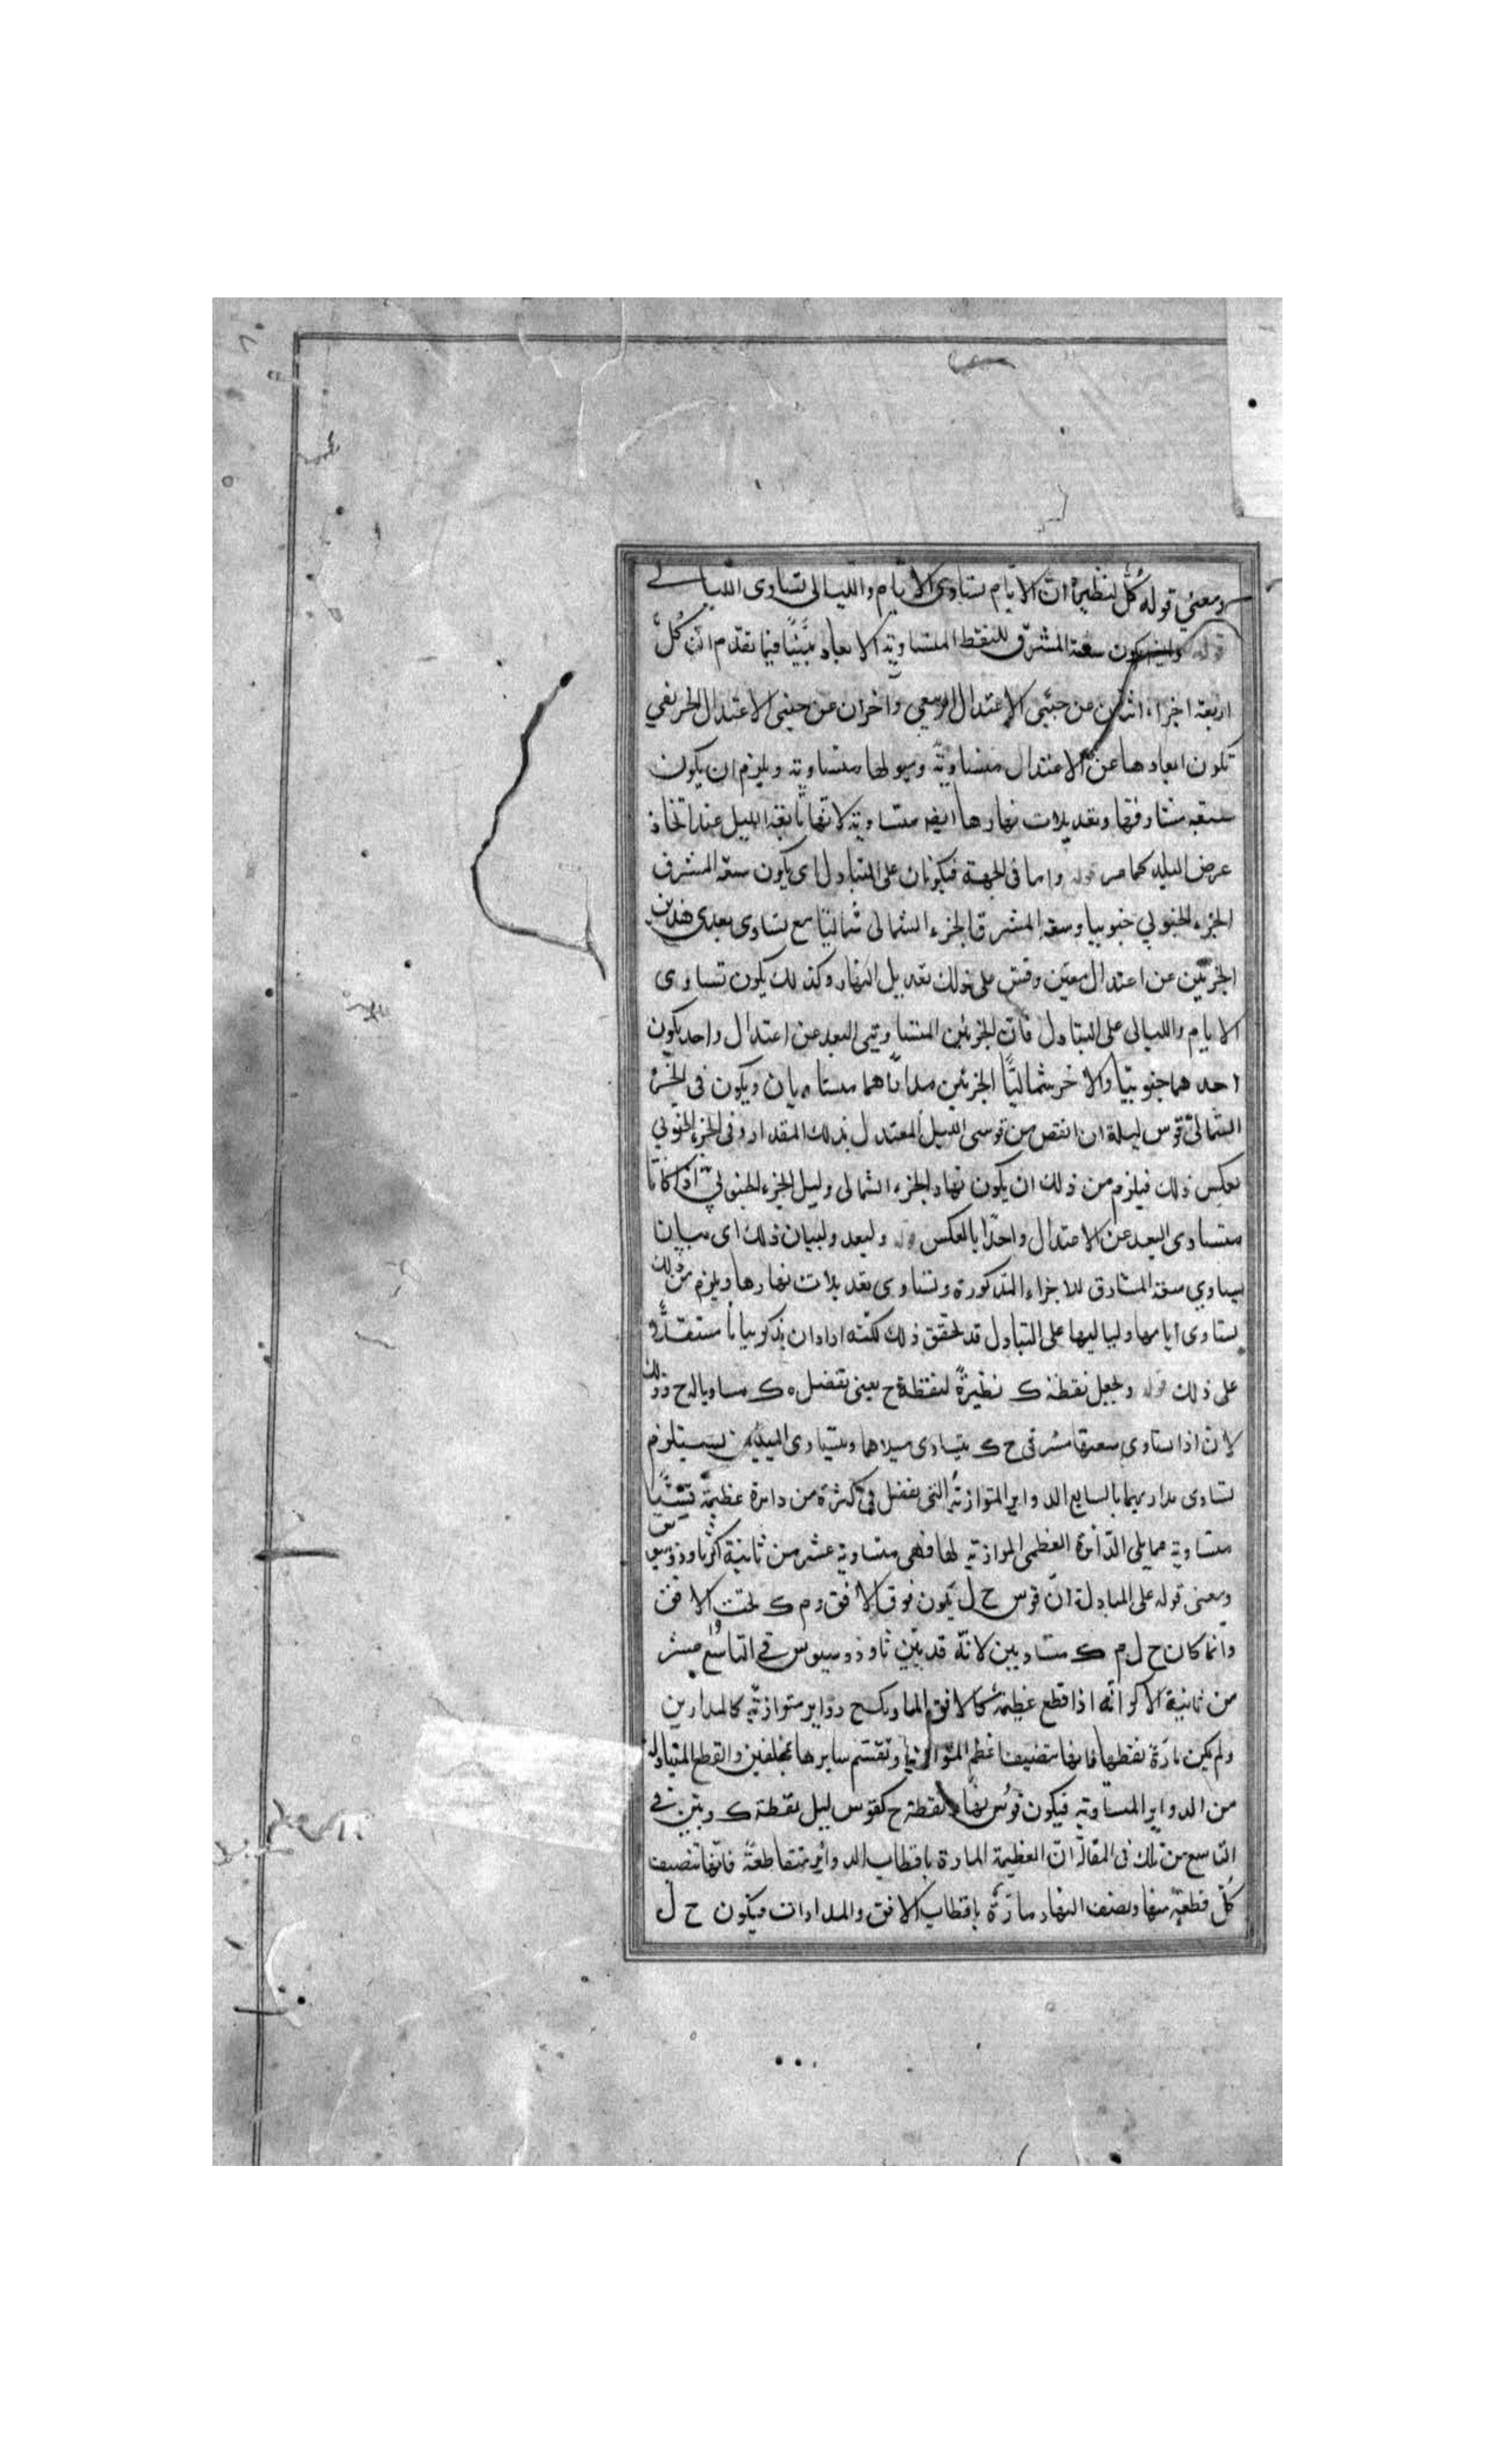 ومعنى قوله كُلّ لنظيره انّ الايّام تساوى الايّام والليالى تساوى الليالى
قوله وايضا يكون سعة المشرق للنقط المتساوية الابعاد بيّنًا فيما تقدّم انّ كُلّ
اربعة اجزاء اثنان عن جنبتى الاعتدال الربيعي واخران عن جنبتى الاعتدال الخريفي
تكون ابعادها عن الاعتدال متساوية وميولها متساوية ويلزم ان يكون
سعة مشارقها وتعديلات نهارها ايضا متساوية لانّها تابعة الميل عند اتحاد
عرض البلد كما مر قوله واما فى الجهة فيكونان على التبادل اى يكون سعة المشرق
الجزء الجنوبي جنوبيا وسعة المشرق الجزء الشمالى شماليّا مع تساوى بعدى هذين
الجزئين عن اعتدال معيّن وقس على ذلك تعديل النهار وكذلك يكون تساوى
الايام والليالى على التبادل فانّ الجزئين المتساويتى البعد عن اعتدال واحد يكون
احدهما جنوبيّا والاخر شماليّا الجزئين مداراهما متساويان ويكون فى الجزء
الشمالىّ قوس ليلة ان انقص من قوسى الليل المعتدل بذلك المقدار وفى الجزء الجنوبي
بعكس ذلك فيلزم من ذلك ان يكون نهار الجزء الشمالى وليل الجزء الجنوبيّ اذا كانا
متساوى البعد عن الاعتدال واحدًا بالعكس قوله وليعد ولبيان ذلك اى بيان
تساوي سعة المشارق للاجزاء المذكورة وتساوى تعديلات نهارها ويلزم من ذلك
تساوى أيامها ولياليها على التبادل قد تحقق ذلك لكنّه اراد ان يذكر بيانا مستقلا
على ذلك قوله ونجعل نقطة ك نظيرةً لنقطة ح يعنى نفصل ه ك مساويا له ح وذلك
لانّ اذا تساوى سعتا مشرقى ح ك يتساوى ميلاهما وتساوى الميلين يستلزم
تساوى مداريهما بالسابع الدواير المتوازيّة التى يفصل فى كثرة من دائرة عظيمة قسيّا
متساوية مما يلى الدّائرة العظمى الموازية لها فهى متساوية عشر من ثانية اكر ثاوذوسيوس
ومعنى قوله على المبادلة انّ قوس ح ل يكون فوق الأفق وم ك تحت الافق
وانّما كان ح ل م ك متساويين لانّه قد بيّن ثاوذوسيوس في التاسع عشر
من ثانية الاكر انّه اذا قطع عظيمة كالافق المار بكح دواير متوازيّة كالمدارين
ولم يكن مارّة بقطبها فانها تنصّف اعظم المتوازية وتقسّم سايرها بمختلفين والقطع المتبادلة
من الدواير المساوية فيكون قوس نهار لنقطة ح كقوس ليل نقطة ك وبيّن في
التاسع من تلك فى المقالة انّ العظيمة المارة باقطاب الدوائر متقاطعة فانّها تنصف
كُلّ قطعةٍ منها ونصف النهار مارّة باقطاب الافق والمدارات فيكون ح ل